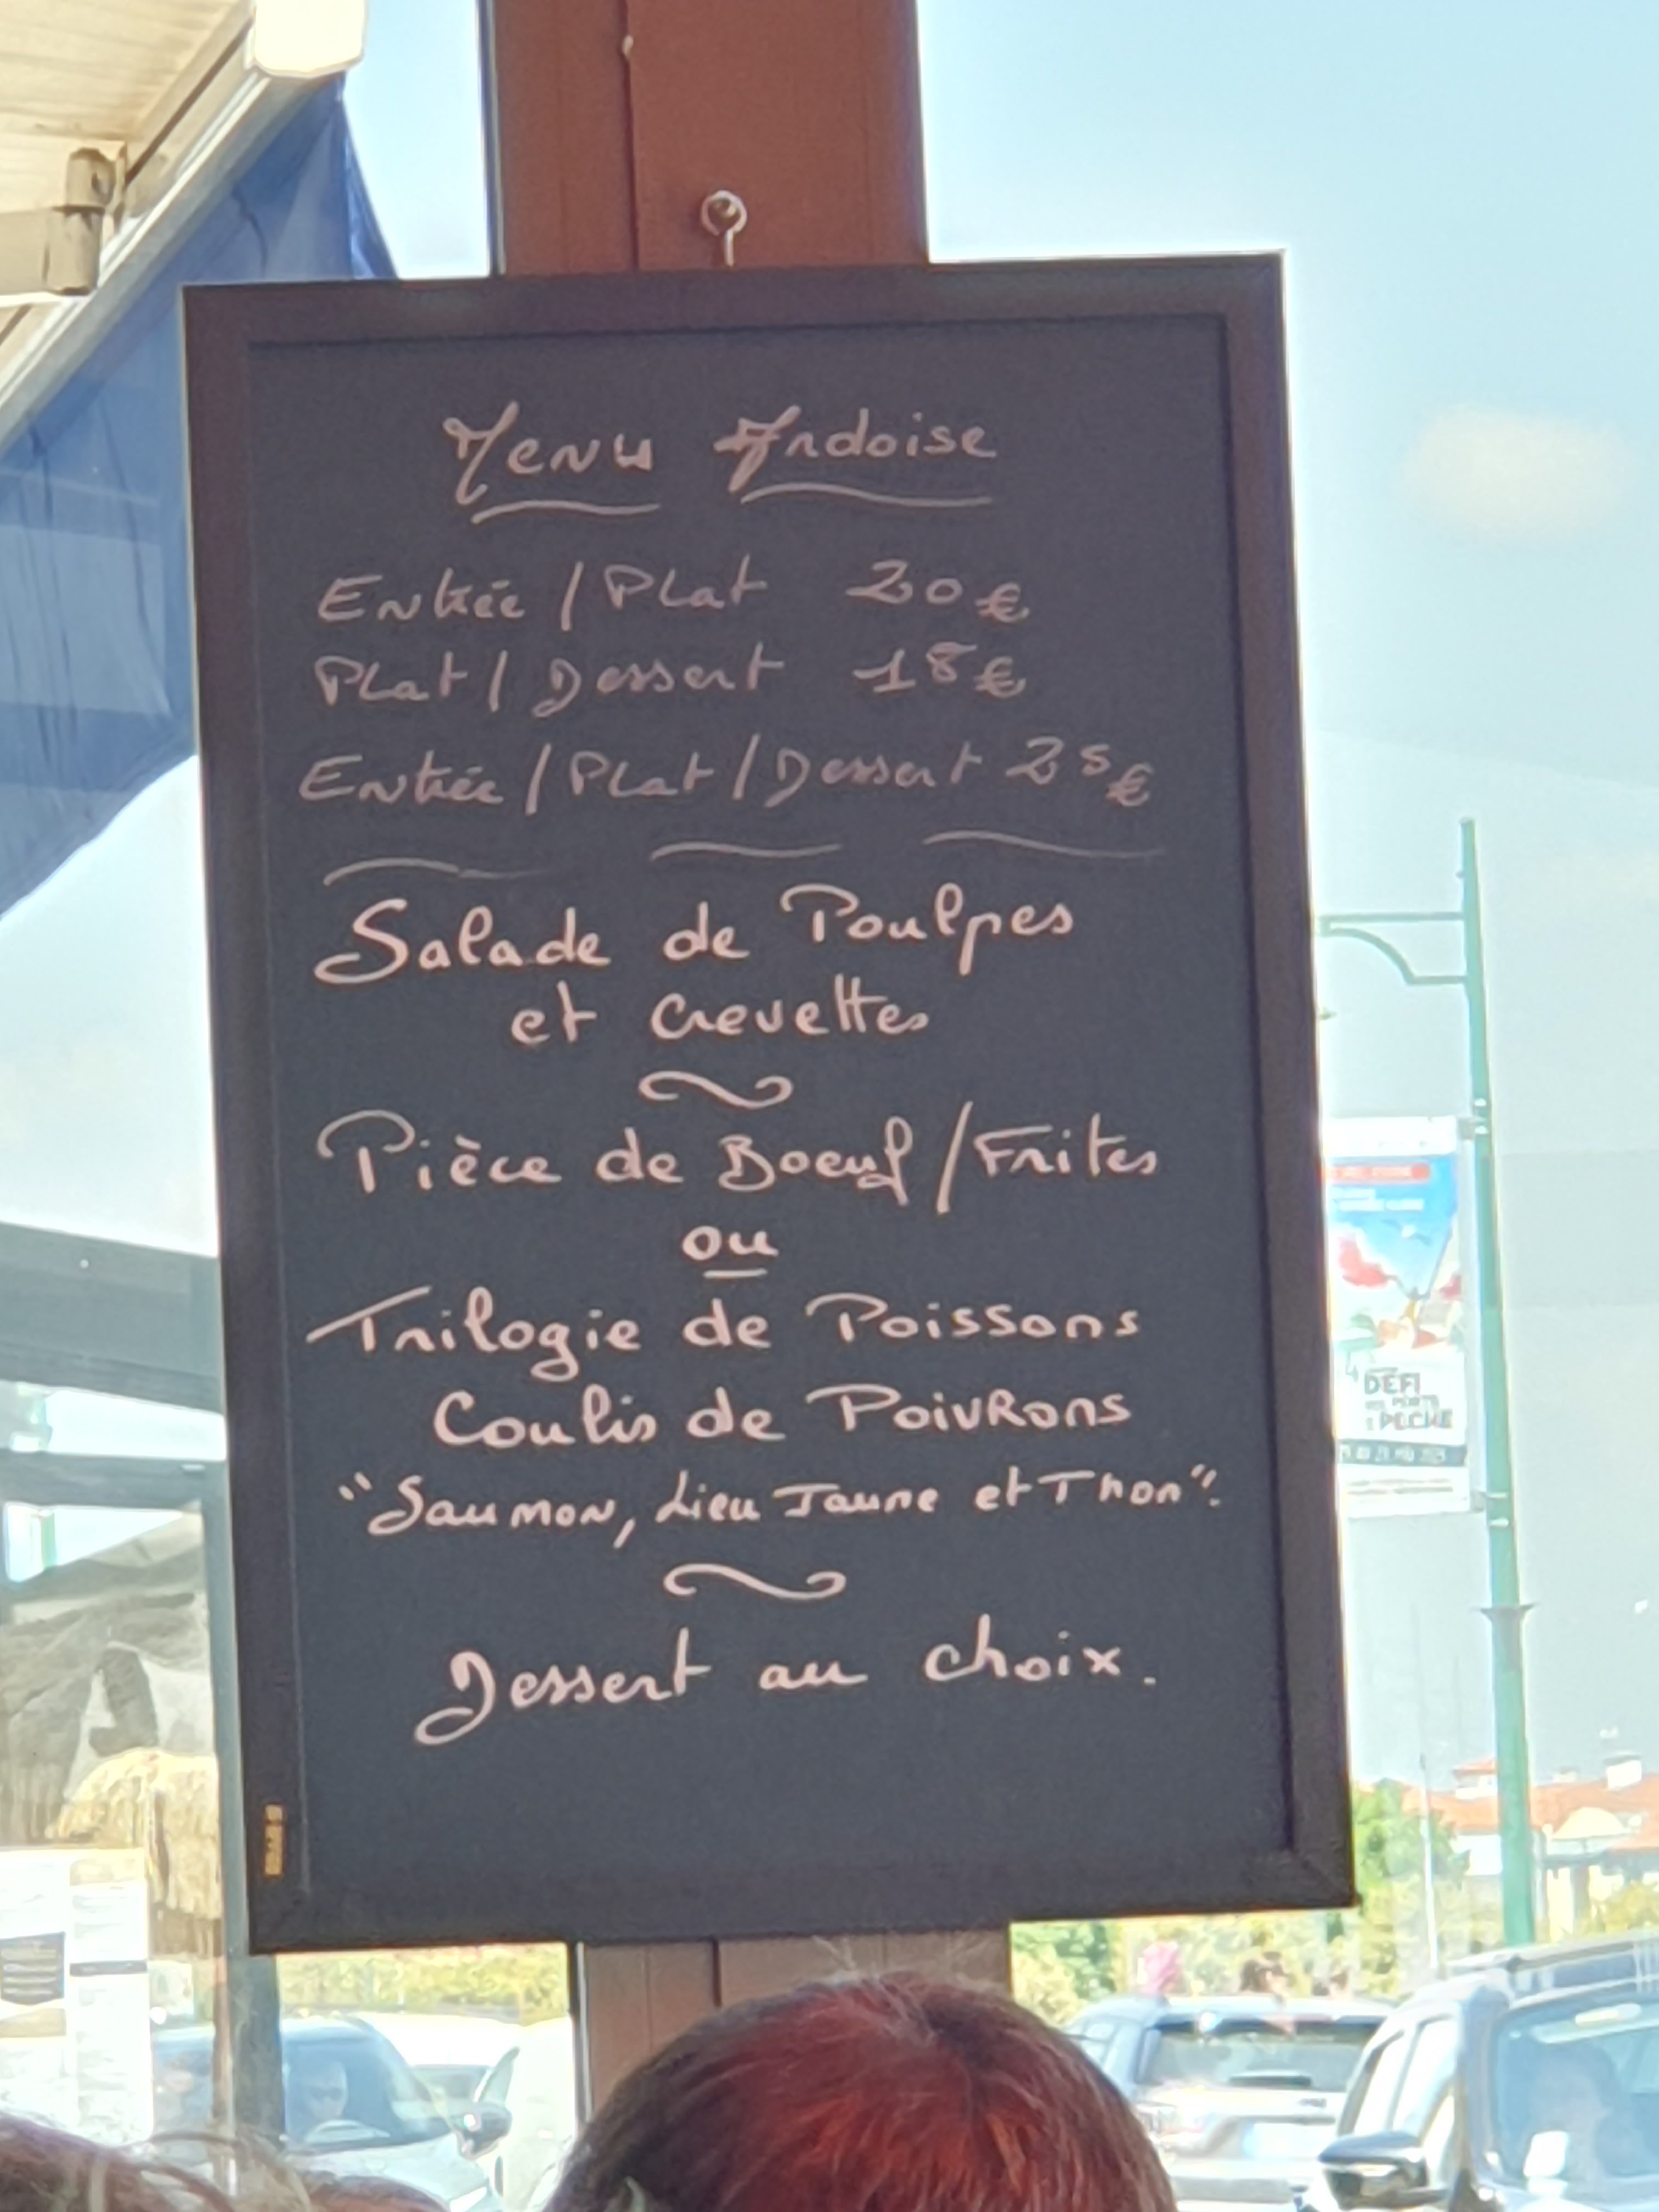 Menu Ardoise
Entrée / Plat 20€
Plat / Dessert 18€
Entrée / Plat / Dessert 25€
Salade de Poulpes
et Crevettes
Pièce de Boeuf / Frites
ou
Trilogie de Poissons
Coulis de Poivrons
"Saumon, Lieu Jaune et Thon".
Dessert au choix.
DÉFI
DES PORTS
PÊCHE